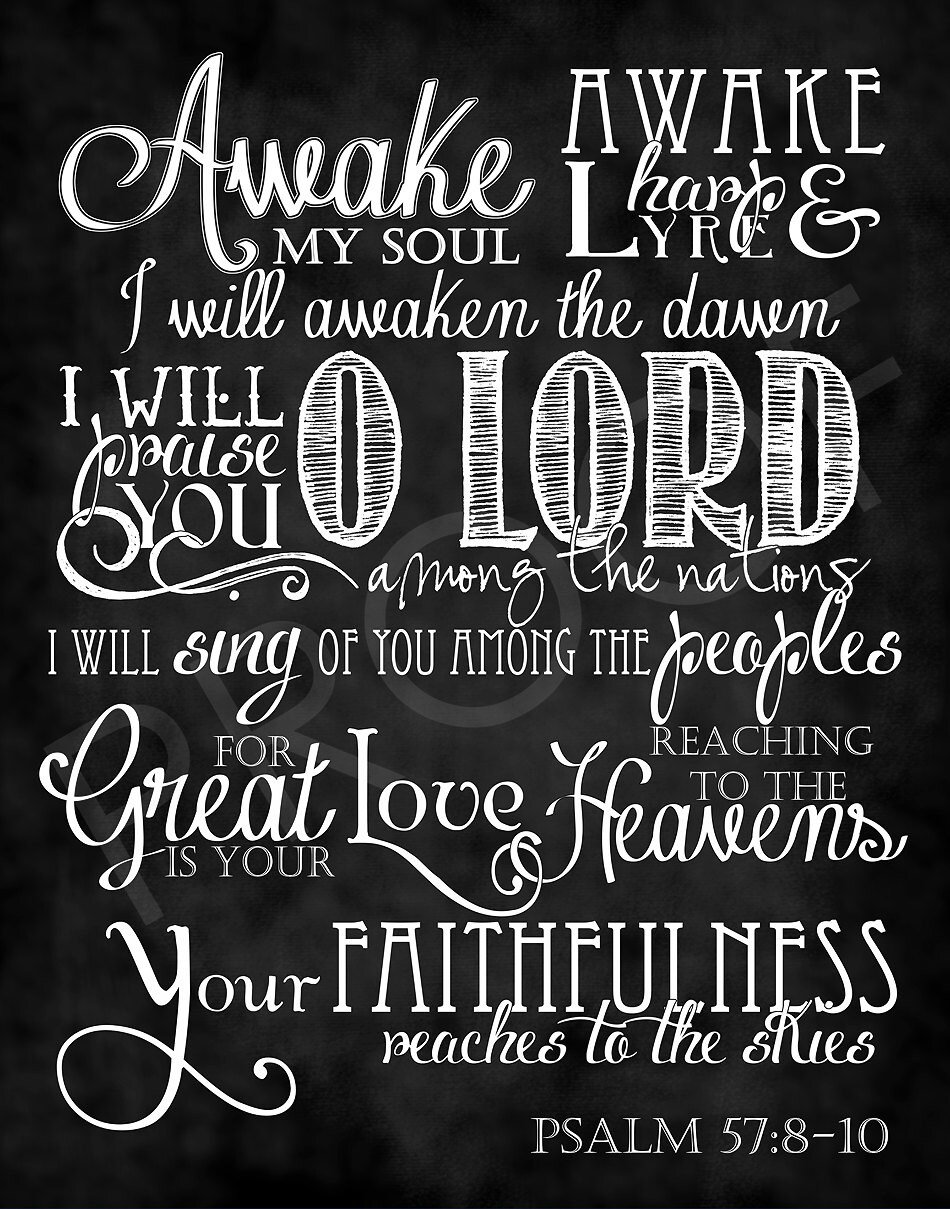 Awake
MY SOUL
AWAKE
harp &
LYRE
I will awaken the dawn
I WILL
praise
YOU
O LORD
among the nations
I WILL sing OF YOU AMONG THE peoples
FOR
Great
IS YOUR
Love
REACHING
TO THE
Heavens
Your FAITHFULNESS
reaches to the skies
PSALM 57:8-10
PROOF